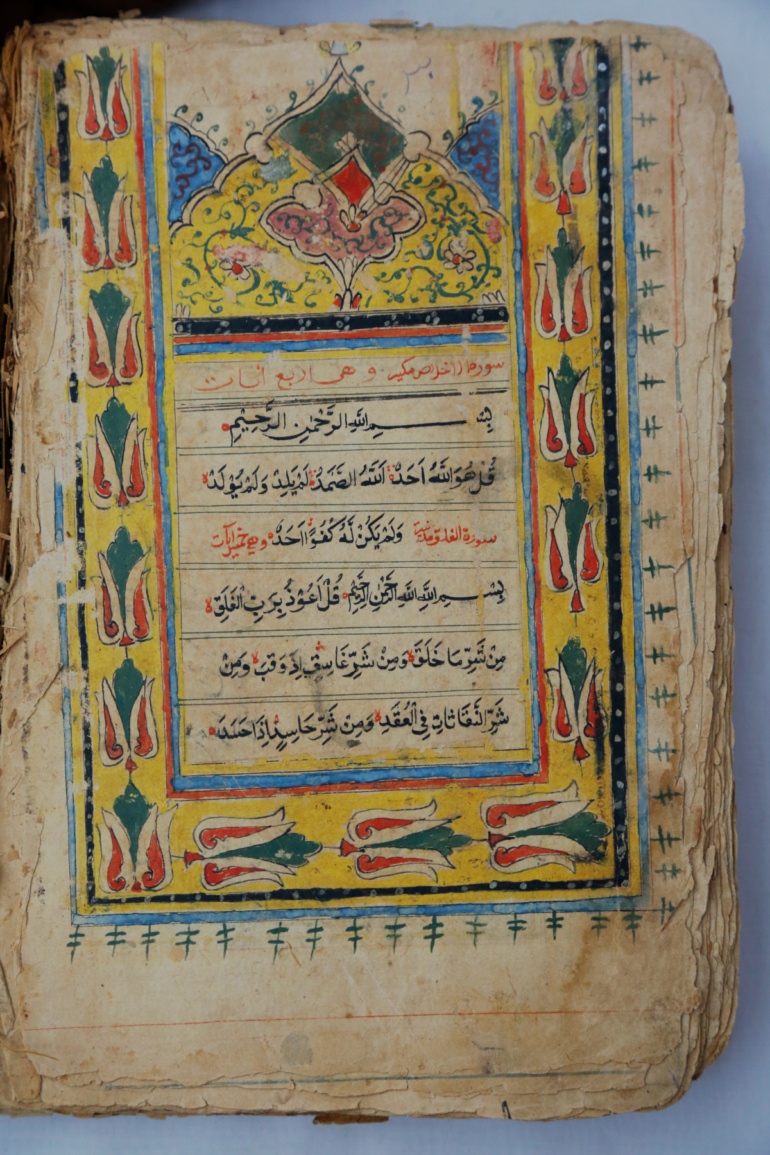 سورة الاخلاص مكية وهى اربع آيات
بِسْمِ اللهِ الرَّحْمٰنِ الرَّحِيْمِ
قُلْ هُوَ اللهُ اَحَدٌ اَللهُ الصَّمَدُ لَمْ يَلِدْ وَلَمْ يُوْلَدْ
سورة الفلق مدنية وَلَمْ يَكُنْ لَّهُ كُفُوًا اَحَدٌ وهي خمس آيات
بِسْمِ اللهِ اللهِ الرَّحْمٰنِ الرَّحِيْمِ قُلْ اَعُوْذُ بِرَبِّ الْفَلَقِ
مِنْ شَرِّ مَا خَلَقَ وَمِنْ شَرِّ غَاسِقٍ اِذَ وَقَبَ وَمِنْ
شَرِّ النَّفَّاثَاتِ فِي الْعُقَدِ وَمِنْ شَرِّ حَاسِدٍ اِذَا حَسَدَ